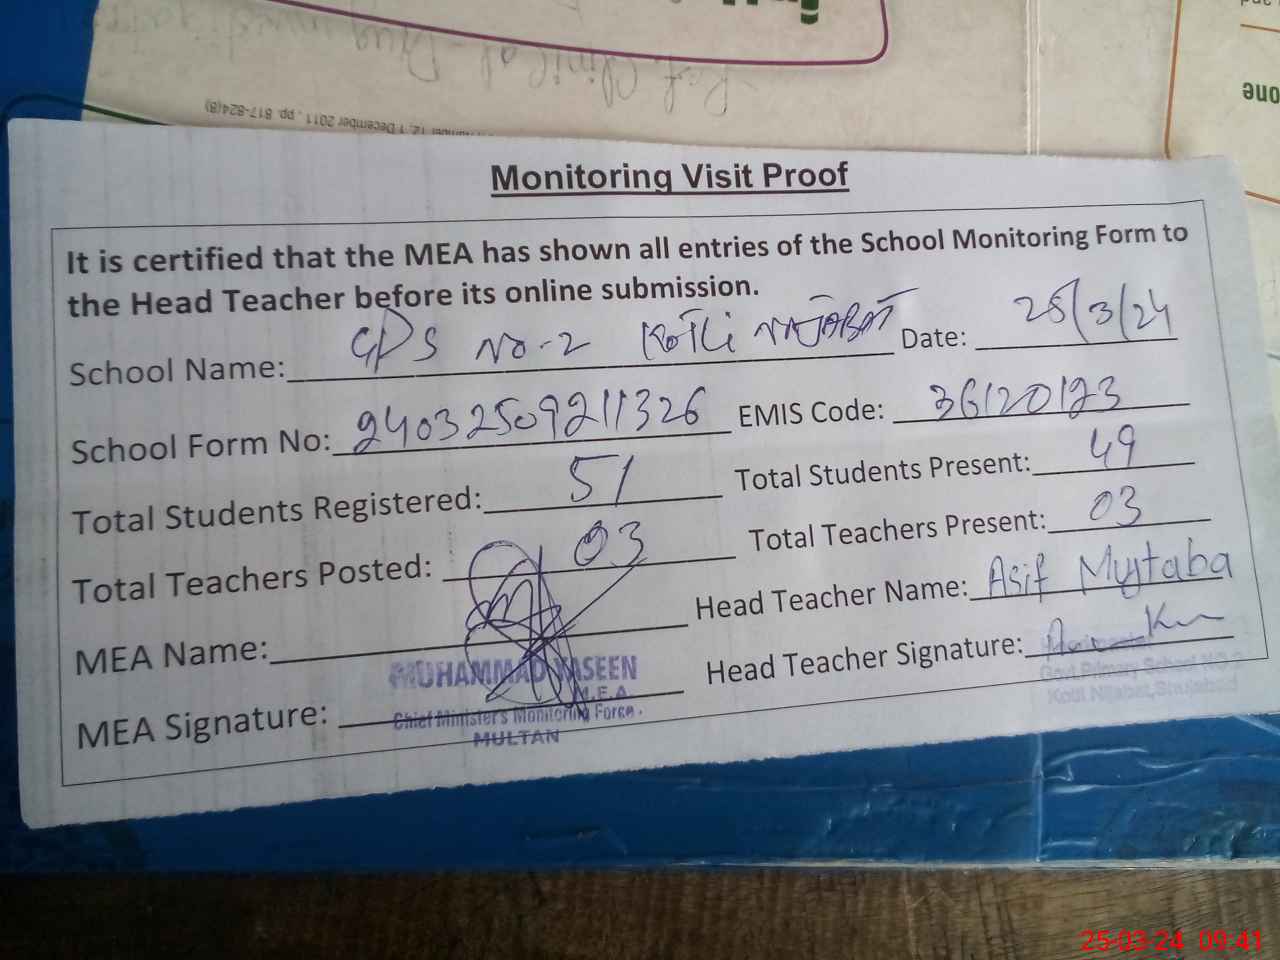 817-824(8)
1 December 2011, pp.
one
Monitoring Visit Proof
It is certified that the MEA has shown all entries of the School Monitoring Form to
the Head Teacher before its online submission.
School Name: GPS No-2 KOTLi NAJABAT Date: 25/3/24
School Form No: 24032509211326 EMIS Code: 36120123
Total Students Registered: 51 Total Students Present: 49
Total Teachers Posted: 03 Total Teachers Present: 03
MEA Name: Head Teacher Name: Asif Mujtaba
MEA Signature: Head Teacher Signature:
MUHAMMAD YASEEN
M.E.A.
Chief Minister's Monitoring Force.
MULTAN
Govt.Primary School NO.2
Kotli Nijabat,Shujabad
25-03-24 09:41